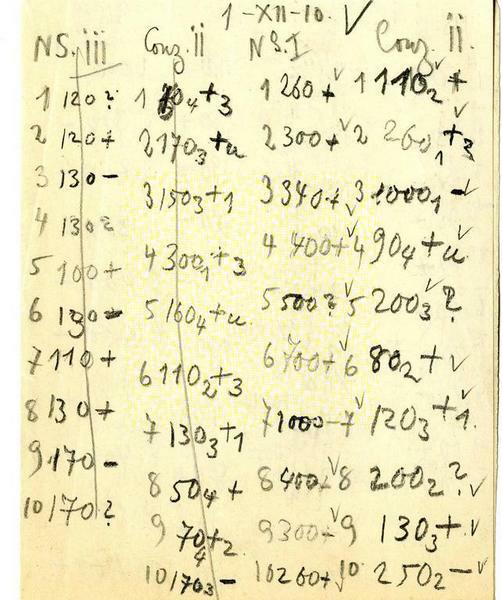 1-XII-10. ✓
NS. iii Conz. ii NS. I Conz. ii.
1 120? 1 704+3 1 260+✓ 1 1102+✓
2 120+ 2 1703+u 2 300+✓ 2 2601+3 ✓
3 130- 3 1503+1 3 340+✓ 3 10001-✓
4 130? 4 3001+3 4 400+✓ 4 904+u ✓
5 100+ 5 1604+u 5 500?✓ 5 2003? ✓
6 130- 6 1102+3 6 700+✓ 6 802+✓
7 110+ 7 1303+1 7 1000-✓ 7 1203+1 ✓
8 130+ 8 504+ 8 400+✓ 8 2002? ✓
9 170- 9 704+2 9 300+✓ 9 1303+✓
10 170? 10 1703- 10 260+✓ 10 2502-✓